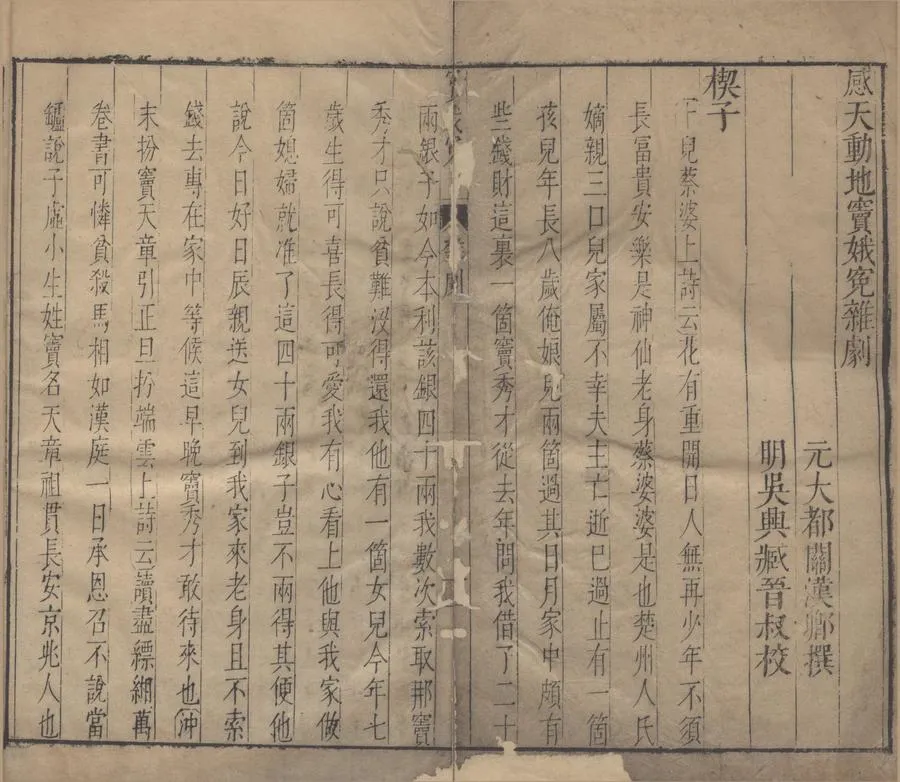 感天動地竇娥冤雜劇
元大都關漢卿撰
明吳興臧晉叔校
楔子
卜兒蔡婆上詩云花有重開日人無再少年不須
長富貴安樂是神仙老身蔡婆婆是也楚州人氏
嫡親三口兒家屬不幸夫主亡逝已過止有一箇
孩兒年長八歲俺娘兒兩箇過其日月家中頗有
些錢財這裏一箇竇秀才從去年問我借了二十
兩銀子如今本利該銀四十兩我數次索取那竇
秀才只說貧難沒得還我他有一箇女兒今年七
歲生得可喜長得可愛我有心看上他與我家做
箇媳婦就准了這四十兩銀子豈不兩得其便他
說今日好日辰親送女兒到我家來老身且不索
錢去專在家中等候這早晚竇秀才敢待來也沖
末扮竇天章引正旦扮端雲上詩云讀盡縹緗萬
卷書可憐貧殺馬相如漢庭一日承恩召不說當
鑪說子虛小生姓竇名天章祖貫長安京兆人也